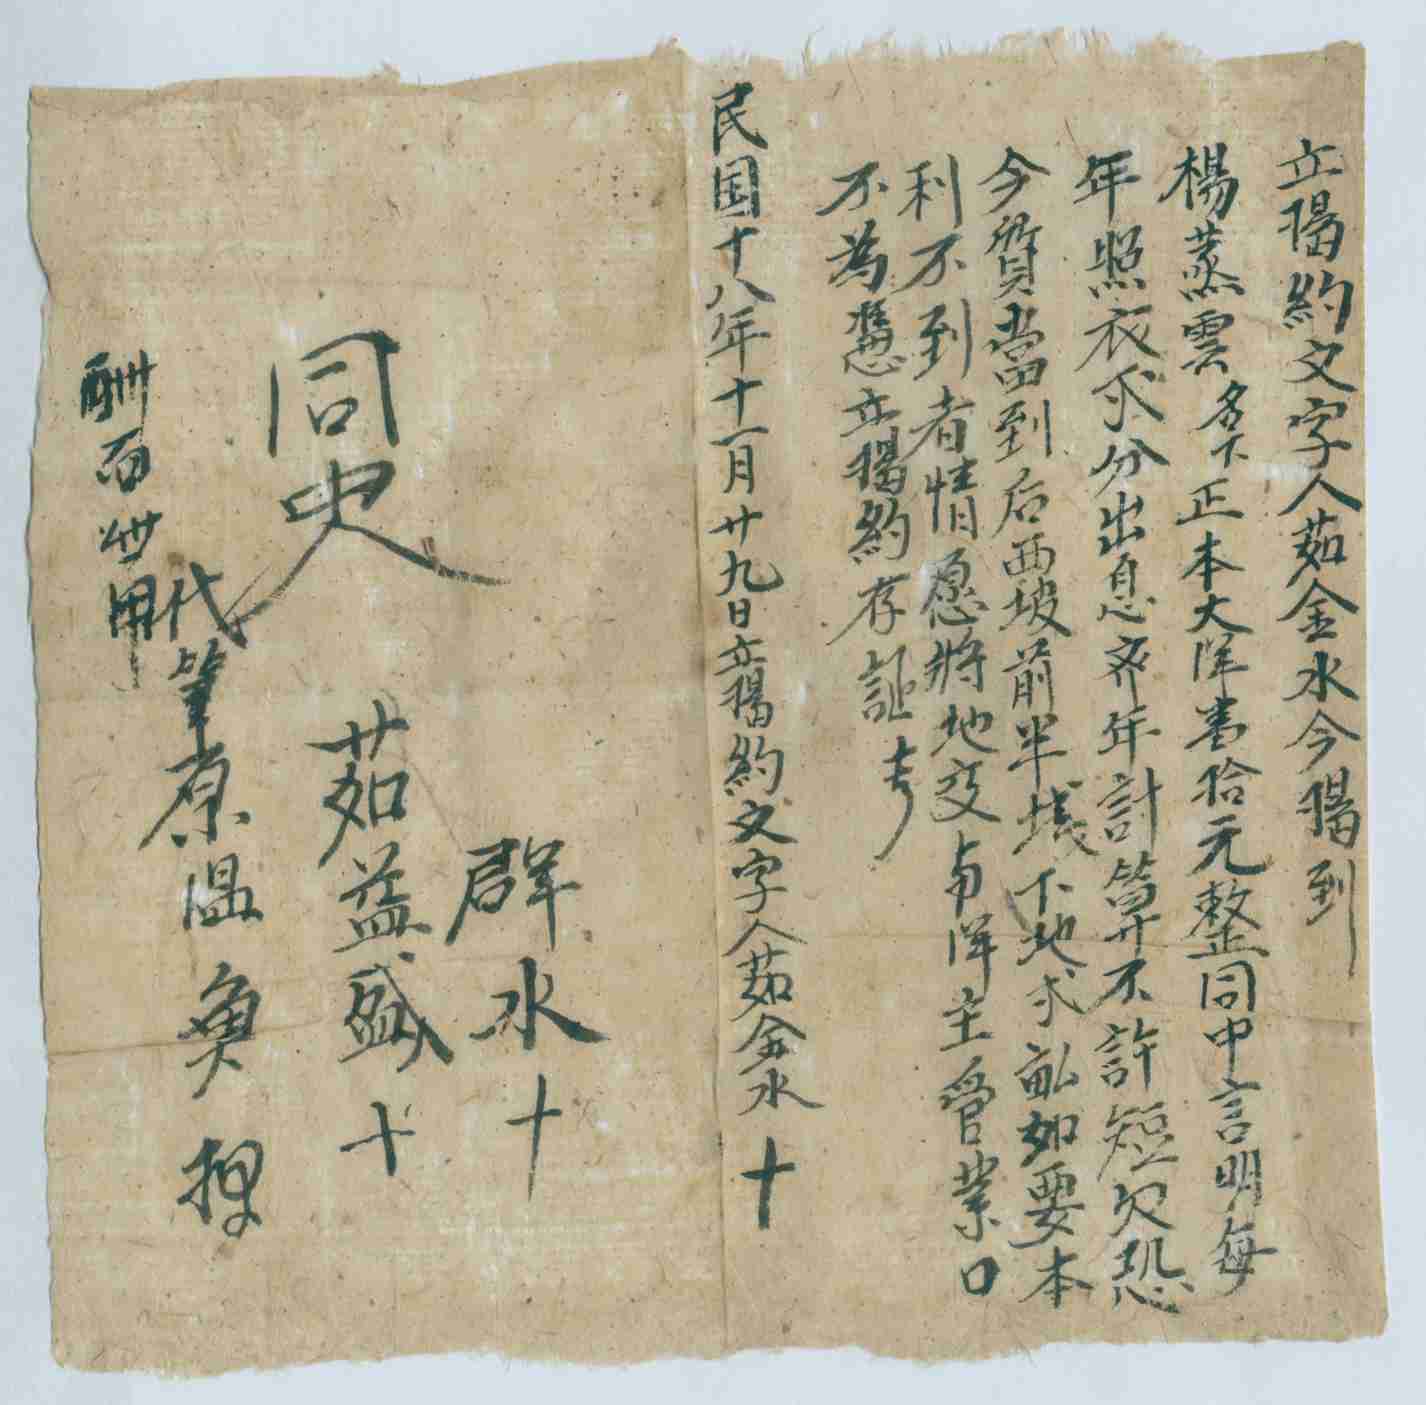 立揭約文字人茹金水今揭到
楊蒸雲名下正本大洋壹拾元整同中言明每
年照衣弍分出息齐年計算不許短欠恐
今質當到后西坡前半坡下地弍畝如要本
利不到者情愿將地交与洋主管業口
不為憑立揭約存証
民国十八年十一月廿九日立揭約文字人茹金水十
群水十
同
茹益盛十
代筆原温
酬百